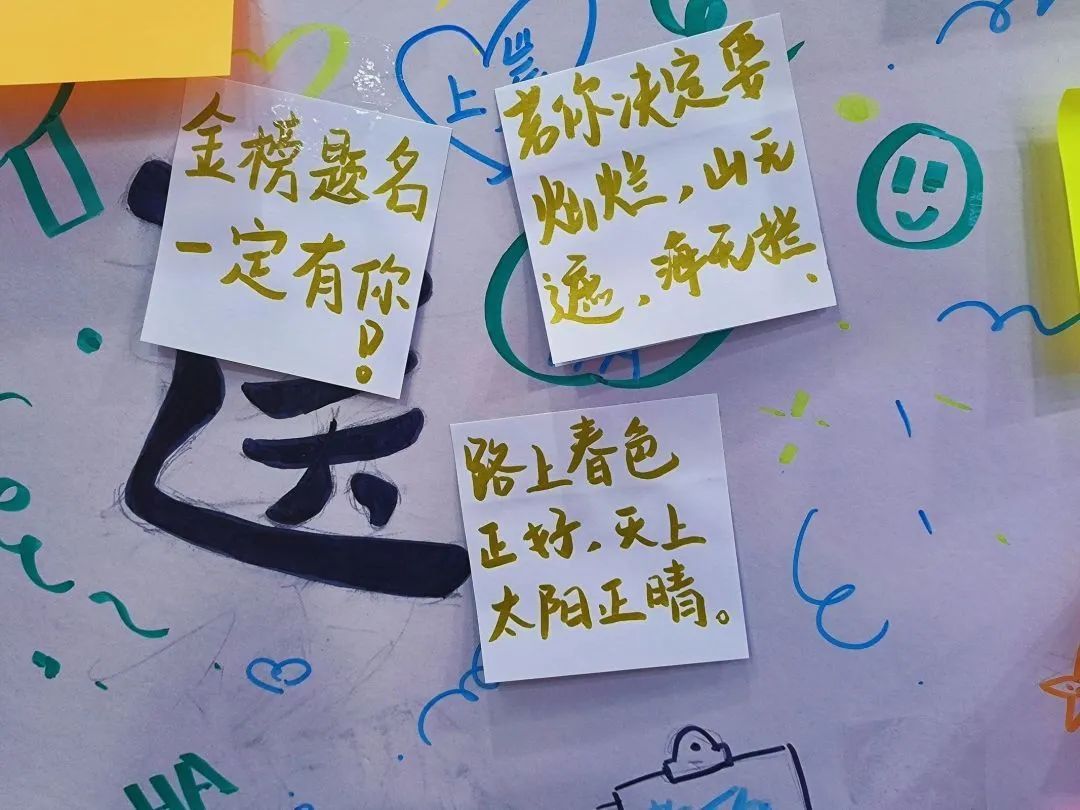 金榜题名
一定有你!
上岸
若你决定要
灿烂,山无
遮,海无拦、
路上春色
正好,天上
太阳正晴。
运
HA